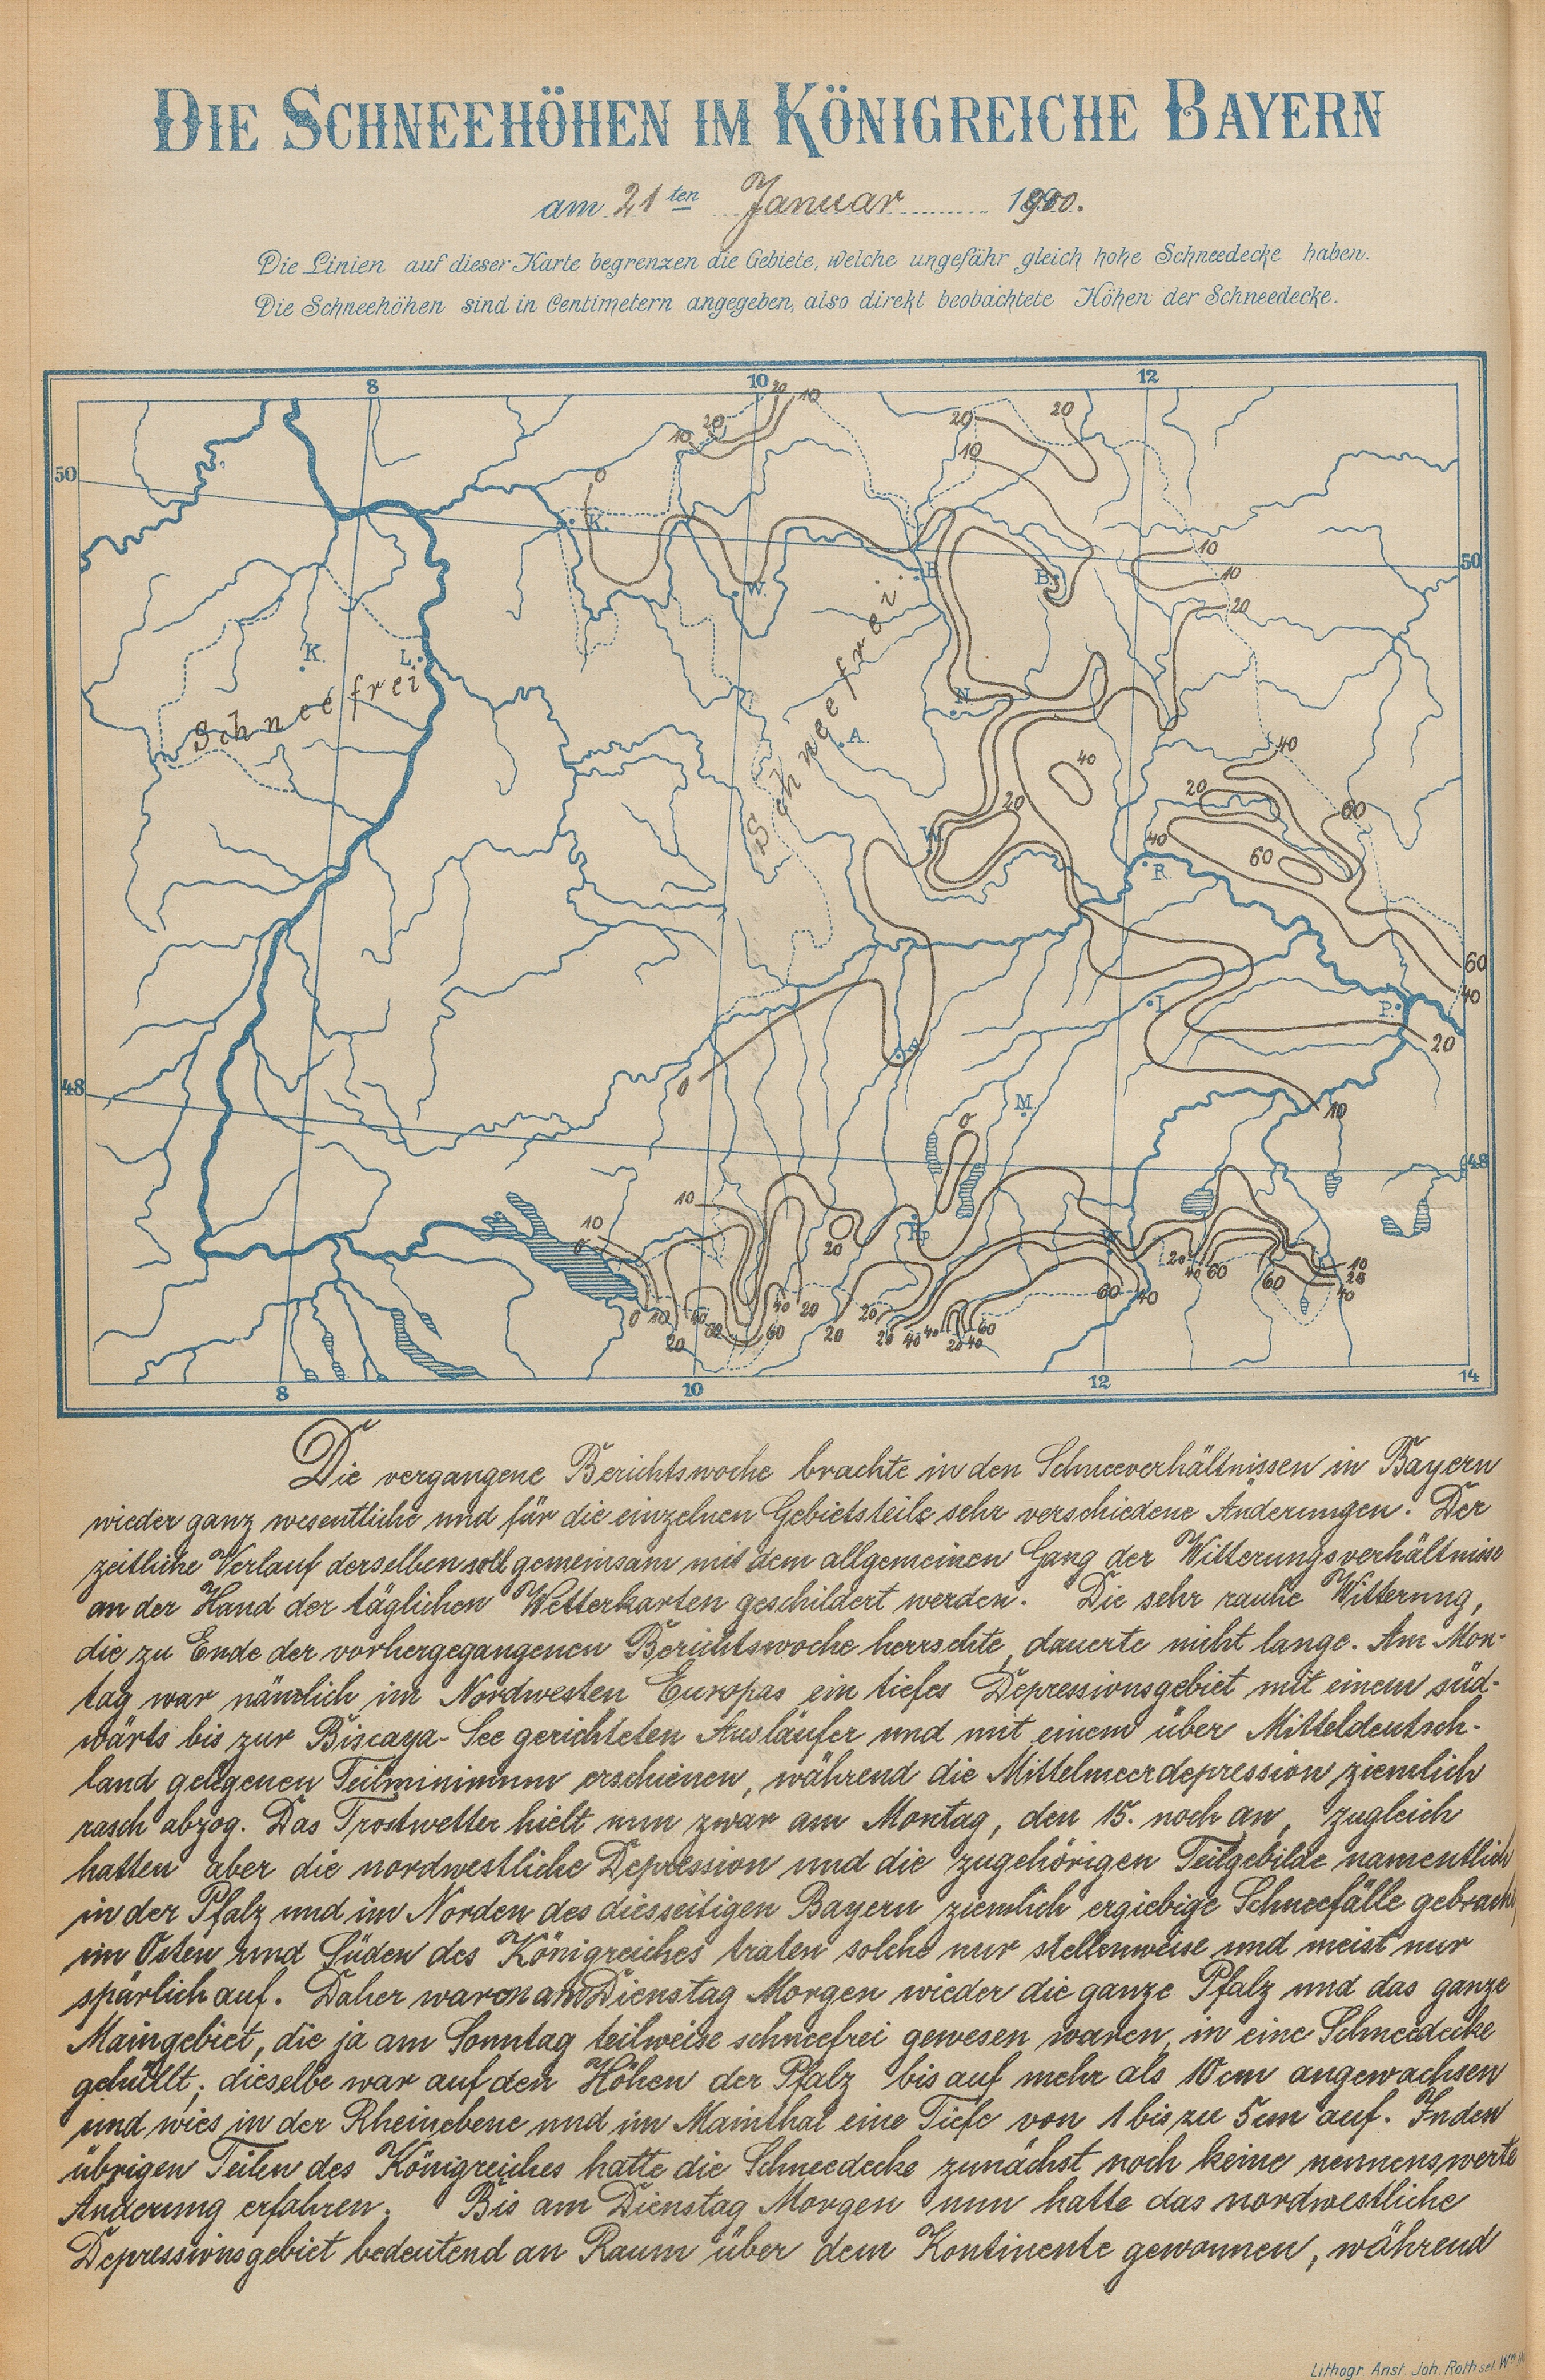 DIE SCHNEEHÖHEN IM KÖNIGREICHE BAYERN
am 21ten Januar 1900.
Die Linien auf dieser Karte begrenzen die Gebiete, welche ungefähr gleich hohe Schneedecke haben.
Die Schneehöhen sind in Centimetern angegeben, also direkt beobachtete Höhen der Schneedecke.
8 10 12
20 10
20 10
20 20
10
50
0
K.
50
10
10
20
W.
B.
B.
K.
L.
Schneefrei
Schneefrei
N.
A.
40
40
20
20
60
W.
40
60
R.
60
40
I.
P.
20
A.
0
48
M.
10
0
48
10
10
0
20
Rp.
0 10 20 40 60 60 40 20 20
20 20 40 40 20 40 60
60 40
20 40 60 60
10
20
40
8 10 12 14
Die vergangene Berichtswoche brachte in den Schneeverhältnissen in Bayern
wieder ganz wesentliche und für die einzelnen Gebietsteile sehr verschiedene Änderungen. Der
zeitliche Verlauf derselben soll gemeinsam mit dem allgemeinen Gang der Witterungsverhältnisse
an der Hand der täglichen Wetterkarten geschildert werden. Die sehr rauhe Witterung,
die zu Ende der vorhergegangenen Berichtswoche herrschte, dauerte nicht lange. Am Mon-
tag war nämlich im Nordwesten Europas ein tiefes Depressionsgebiet mit einem süd-
wärts bis zur Biscaya-See gerichteten Ausläufer und mit einem über Mitteldeutsch-
land gelegenen Teilminimum erschienen, während die Mittelmeerdepression ziemlich
rasch abzog. Das Frostwetter hielt nun zwar am Montag, den 15. noch an, zugleich
hatten aber die nordwestliche Depression und die zugehörigen Teilgebilde namentlich
in der Pfalz und im Norden des diesseitigen Bayern ziemlich ergiebige Schneefälle gebracht,
im Osten und Süden des Königreiches traten solche nur stellenweise und meist nur
spärlich auf. Daher waren am Dienstag Morgen wieder die ganze Pfalz und das ganze
Maingebiet, die ja am Sonntag teilweise schneefrei gewesen waren, in eine Schneedecke
gehüllt; dieselbe war auf den Höhen der Pfalz bis auf mehr als 10 cm angewachsen
und wies in der Rheinebene und im Mainthal eine Tiefe von 1 bis zu 5 cm auf. In den
übrigen Teilen des Königreiches hatte die Schneedecke zunächst noch keine nennenswerte
Änderung erfahren. Bis am Dienstag Morgen nun hatte das nordwestliche
Depressionsgebiet bedeutend an Raum über dem Kontinente gewonnen, während
Lithogr. Anst. Joh. Roth sel. Ww.